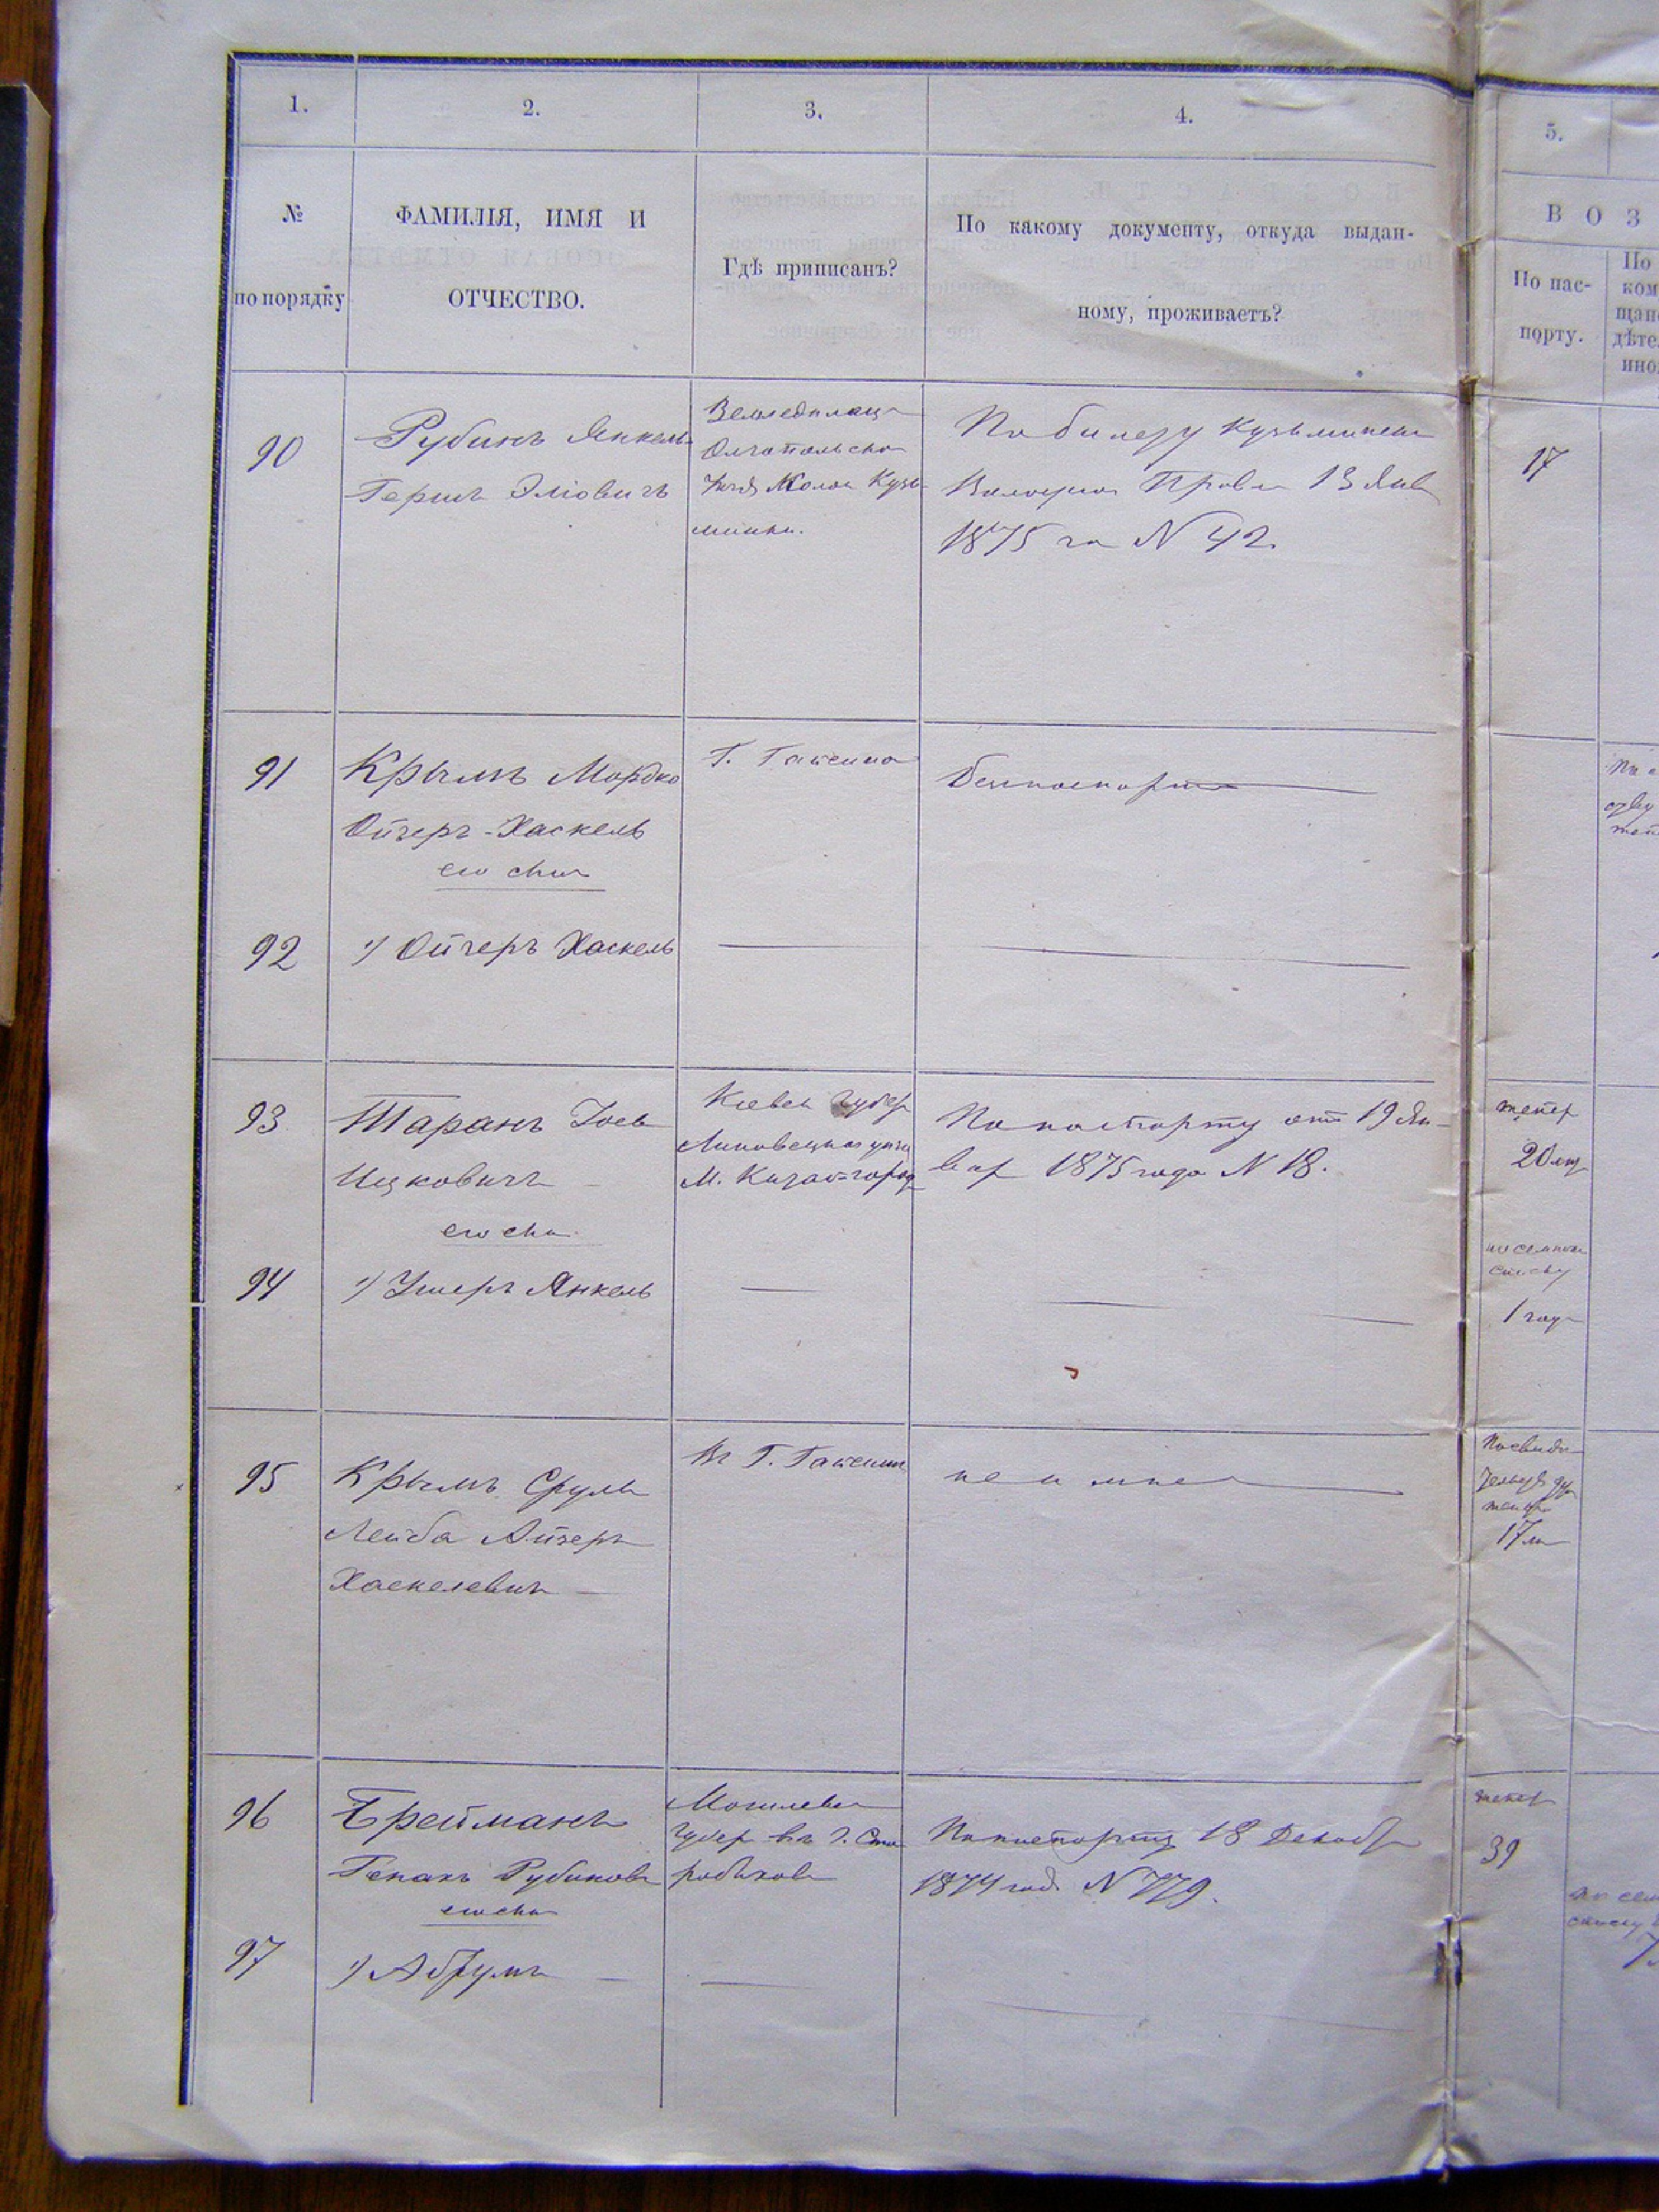 1.
2.
3.
4.
5.
№
по порядку
ФАМИЛІЯ, ИМЯ И
ОТЧЕСТВО.
Гдѣ приписанъ?
По какому документу, откуда выдан-
ному, проживаетъ?
В О З
По пас-
порту.
По
ком
щан
дѣте
ино
90
Рубинъ Янкель
Гершъ Эліовичъ
Ольгопольско
Кузь
минки.
По билету Кузьминск
Волостн Правл 13 Янв
1875 го N 42
17
91
Крымъ Мордко
Ойзеръ-Хаскель
его сын
Г. Гайсина
Безпаспорт
92
1) Ойзеръ Хаскель
93
Таранъ Іось
Ицковичъ
его сын
Киевск губер
Липовецкаго уезд
М. Китай-город
По паспорту от 19 Ян-
вар 1875 года N 18.
20 лет
94
1) Ушеръ Янкель
по семейн
списку
1 годъ
95
Крымъ Сруль
Лейба Айзеръ
Хаскелевичъ
Въ Г. Гайсин
не имѣе
17 ле
96
Брейманъ
Генахъ Рубинов
его сын
Могилевск
губер въ Г. Ста
робыхов
По паспорту 18 Декабр
1874 год. N 779.
39
97
1) Абрумъ